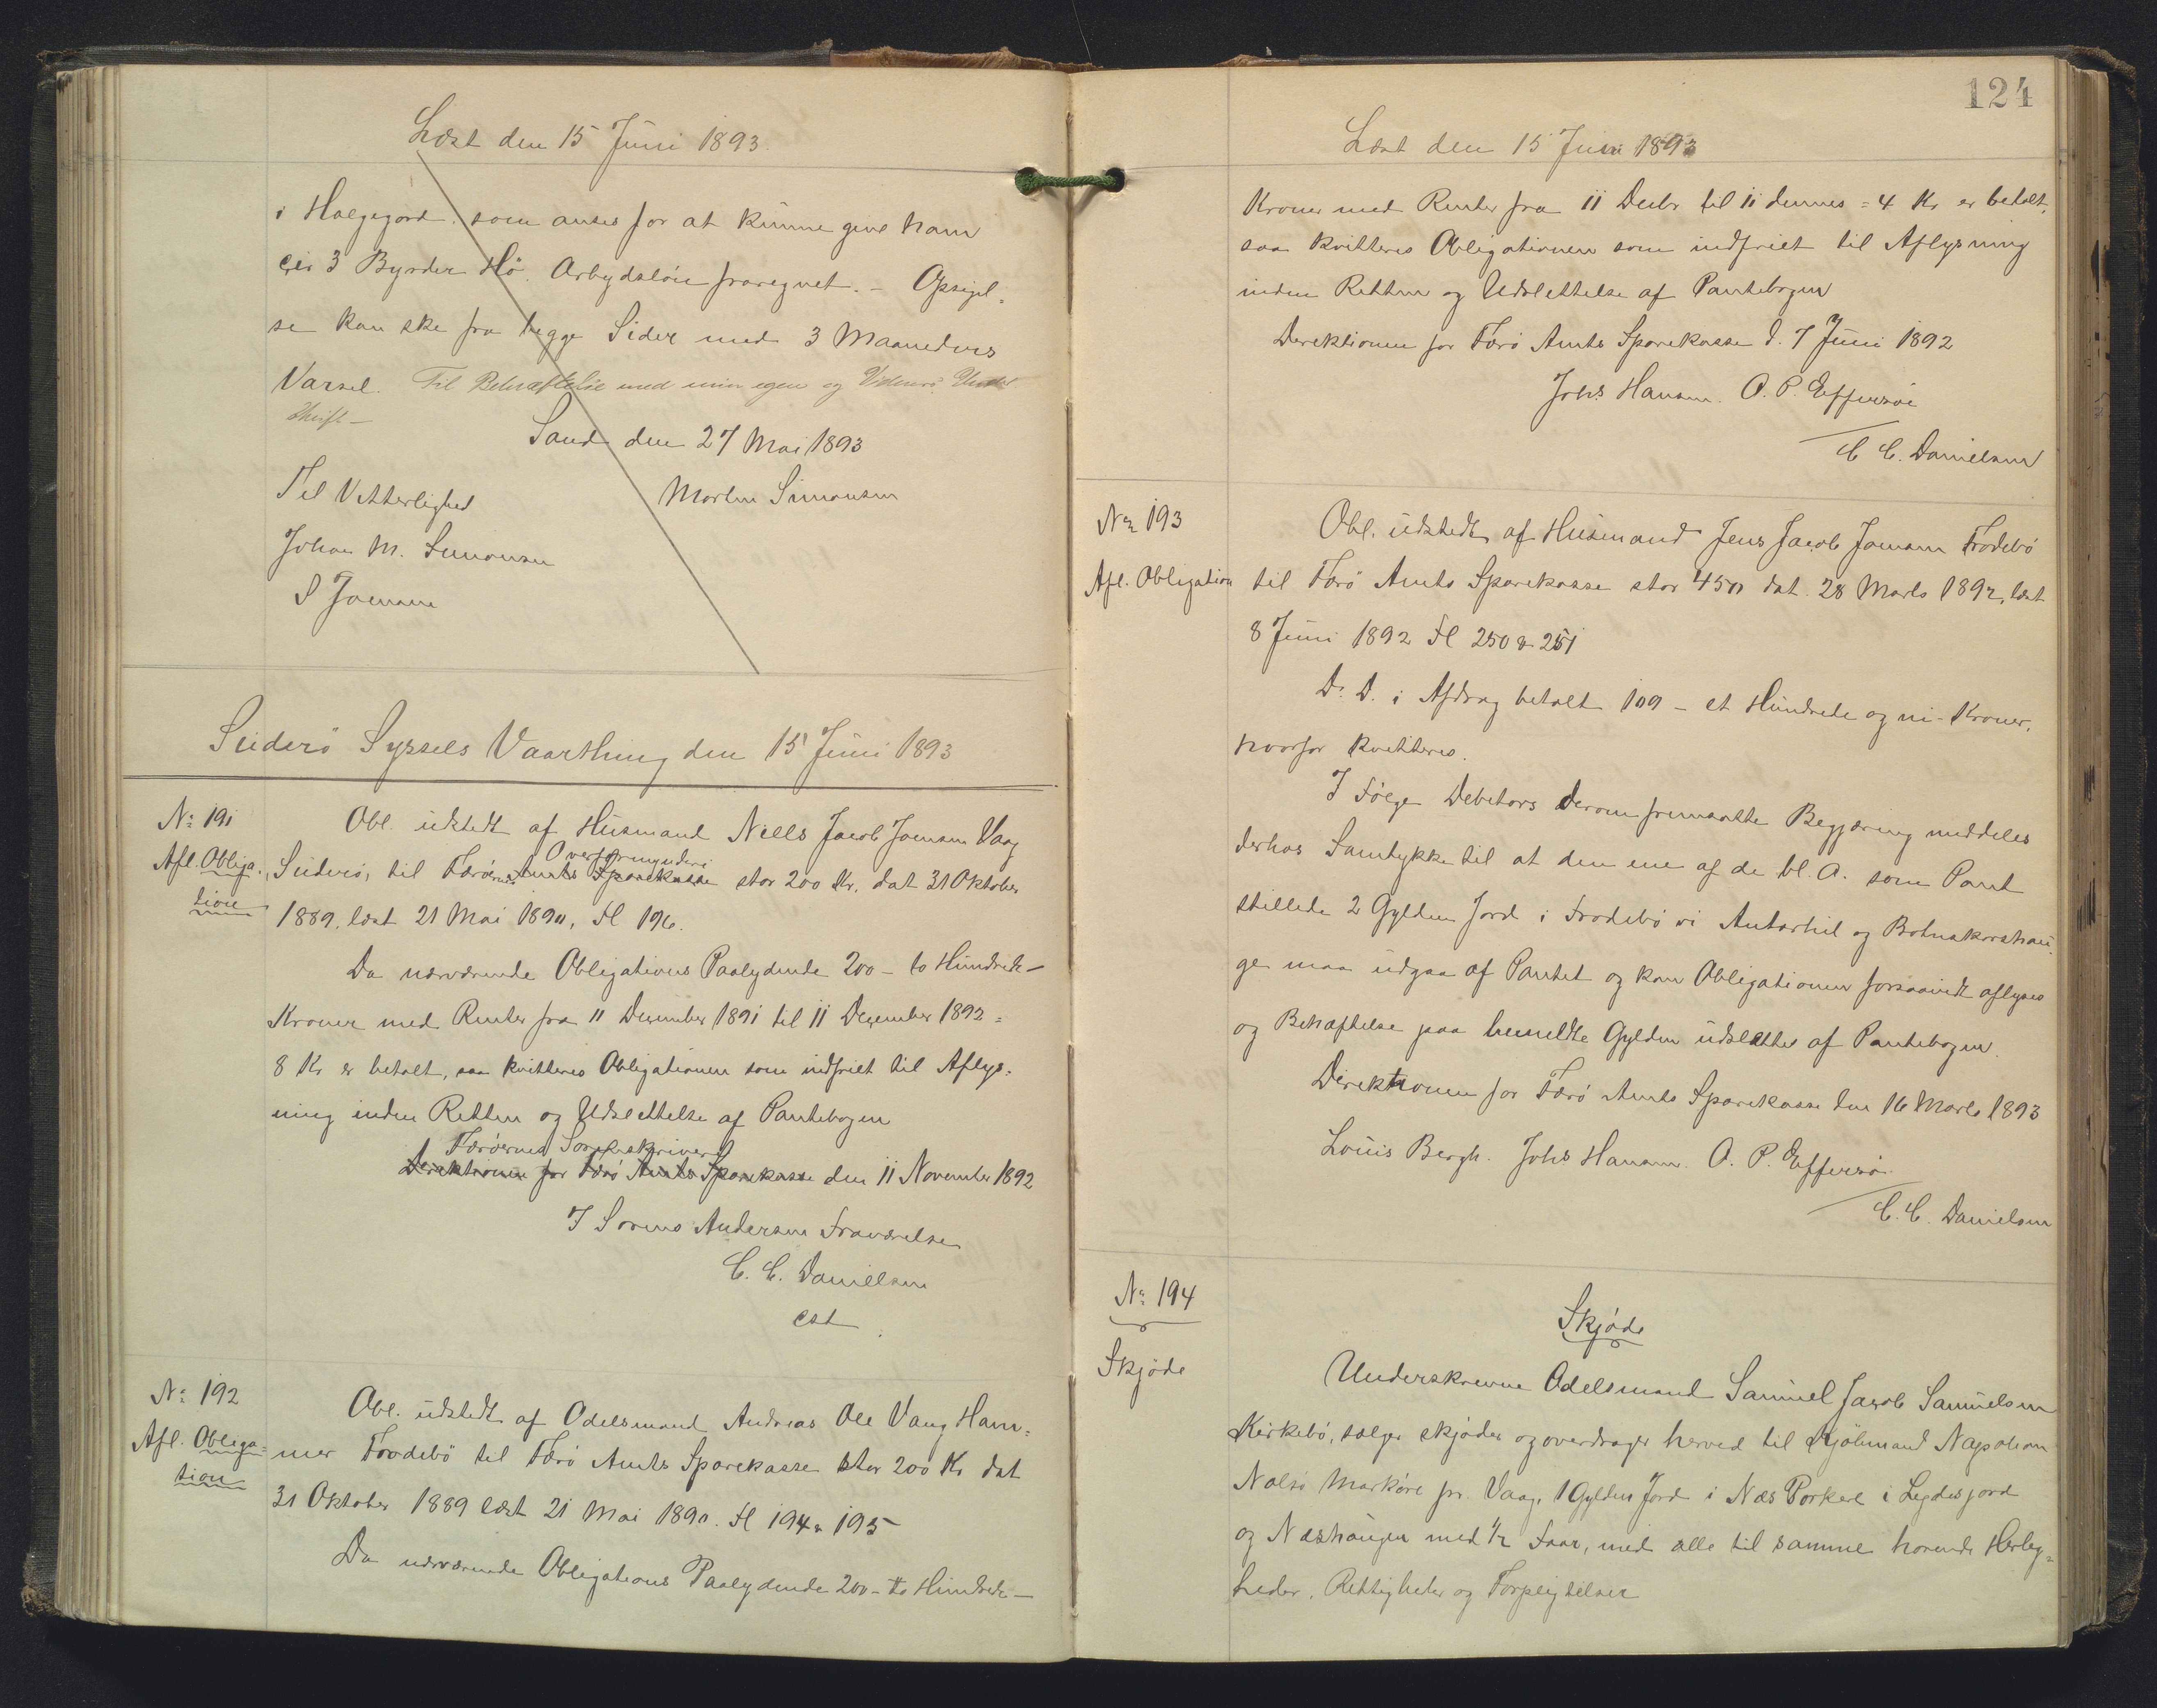 Læst den 15 Juni 1893.
i Halgegord. som anses for at kunne give ham
3 Byrder Hö. Arbydslön fraregnet. - Opsigel=
se kan ske fra begge Sider med 3 Maaneders
Varsel. Til Bekræftelse med min egen og Vidners Under
skrift -
Sand den 27 Mai 1893
Til Vitterlighed
Morten Simonsen
Johan M. Simonsen
S Joensen
Suderö Syssels Vaarthing den 15 Juni 1893
No 191
Afl. Obliga-
tion
Obl. udstedt af Husmand Niells Jacob Joensen Vaag
Overformynderi
Suderö, til Færöernes Amts Sparekasse stor 200 Kr. dat 31 Oktober
1889. læst 21 Mai 1890, Fl 196.
Da nærværende Obligations Paalydende 200 - to Hundrede -
Kroner med Renter fra 11 Dezember 1891 til 11 Dezember 1892 =
8 Kr er betalt, saa kvitteres Obligationen som indfriet til Aflys=
ning inden Retten og Udslettelse af Pantebogen
Færöernes Sorenskriveri
Direktionen for Færö Amts Sparekasse den 11 November 1892
I Sorens Andersens Fraværelse
C. C. Danielsen
cst
No 192
Afl. Obliga=
tion
Obl. udstedt af Odelsmand Andreas Ole Vang Ham=
mer Frodebö til Færö Amts Sparekasse stor 200 Kr dat
31 Oktober 1889 læst 21 Mai 1890. Fl 194 & 195
Da nærværende Obligations Paalydende 200 - to Hundrede -
124
Læst den 15 Juni 1893
Kroner med Renter fra 11 Decbr til 11 dennes = 4 Kr er betalt,
saa kvitteres Obligationen som indfriet til Aflysning
inden Retten og Udslettelse af Pantebogen
Direktionen for Færö Amts Sparekasse d. 7 Juni 1892
Johs Hansen. O. P. Effersöe
C C. Danielsen
No 193
Afl. Obligation
Obl. udstedt af Husmand Jens Jacob Joensen Frodebö
til Færö Amts Sparekasse stor 450 dat. 28 Marts 1892, læst
8 Juni 1892 Fl 250 & 251
D. D. i Afdrag betalt 109 - et Hundrede og ni - Kroner,
hvorfor kvitteres.
I Fölge Debitors derom fremsatte Begjæring meddeles
derhos Samtykke til at den ene af de bl. A. som Pant
stillede 2 Gylden Jord i Frodebö vi Autarhil og Botnskorshau
ge maa udgaa af Pantet og kan Obligationen forsaavidt aflyses
og Behæftelse paa bemeldte Gylden udslettes af Pantebogen.
Direktionen for Færö Amts Sparekasse den 16 Marts 1893
Louis Bergh. Johs Hansen. O. P. Effersöe
C. C. Danielsen
No 194
Skjöde
Skjöde
Underskrevne Odelsmand Samuel Jacob Samuelsen
Kirkebö, sælger skjöder og overdrager herved til Kjöbmand Napoleon
Nolsö Marköre pr. Vaag, 1 Gylden Jord i Næs Porkere i Legdesjord
og Næshaugen med 1/2 Faar, med alle til samme hörende Herlig=
heder, Rettigheder og Forpligtelser